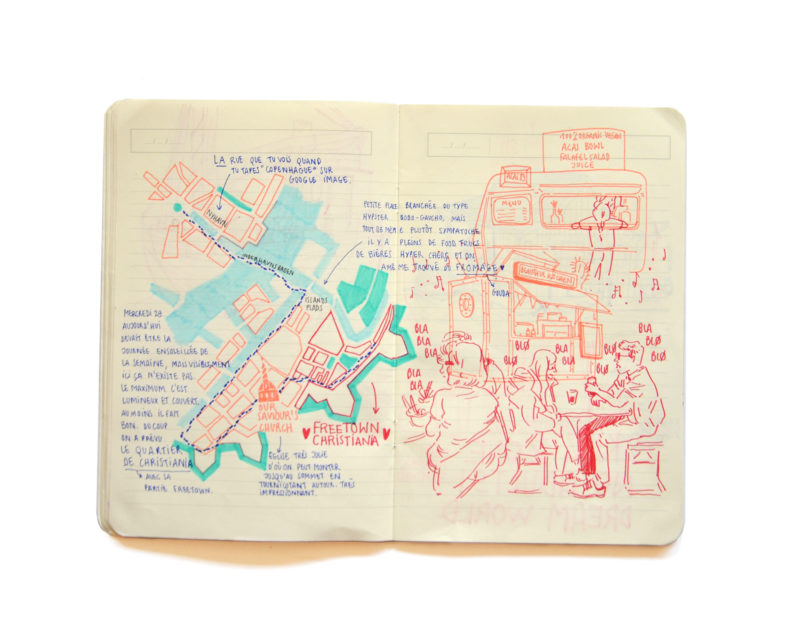 LA RUE QUE TU VOIS QUAND
TU TAPES "COPENHAGUE" SUR
GOOGLE IMAGE.
NYHAVN
INDERHAVNSBROEN
ISLANDS
PLADS
PETITE PLACE BRANCHÉE OU TYPE
HYPSTER BOBO-GAUCHO, MAIS
TOUT DE MÊME PLUTÔT SYMPATOCHE
IL Y A PLEINS DE FOOD TRUCK
DE BIÈRES HYPER CHÈRE ET ON
A MÊME TROUVÉ DU FROMAGE
GOUDA
MERCREDI 28
AUJOURD'HUI
DEVAIT ÊTRE LA
JOURNÉE ENSOLEILLÉE DE
LA SEMAINE, MAIS VISIBLEMENT
ICI ÇA N'EXISTE PAS.
LE MAXIMUM C'EST
LUMINEUX ET COUVERT.
AU MOINS IL FAIT
BON. DU COUP
ON A PRÉVU
LE QUARTIER
DE CHRISTIANIA
* AVEC SA
PARTIE FREETOWN.
OUR
SAVIOUR'S
CHURCH
FREETOWN
CHRISTIANIA
EGLISE TRÈS JOLIE
D'OÙ ON PEUT MONTER
JUSQU'AU SOMMET EN
TOURNICOTANT AUTOUR. TRÈS
IMPRESSIONNANT.
100% ORGANIC VEGAN
ACAI BOWL
FALAFEL SALAD
JUICE
MENU
BLA
BLA
BLA
BLA
BLØ
BLØ
BLA
BLA
BLØ
BLØ
BLA
BLØ
BLA
BLØ
DREAM WORLD